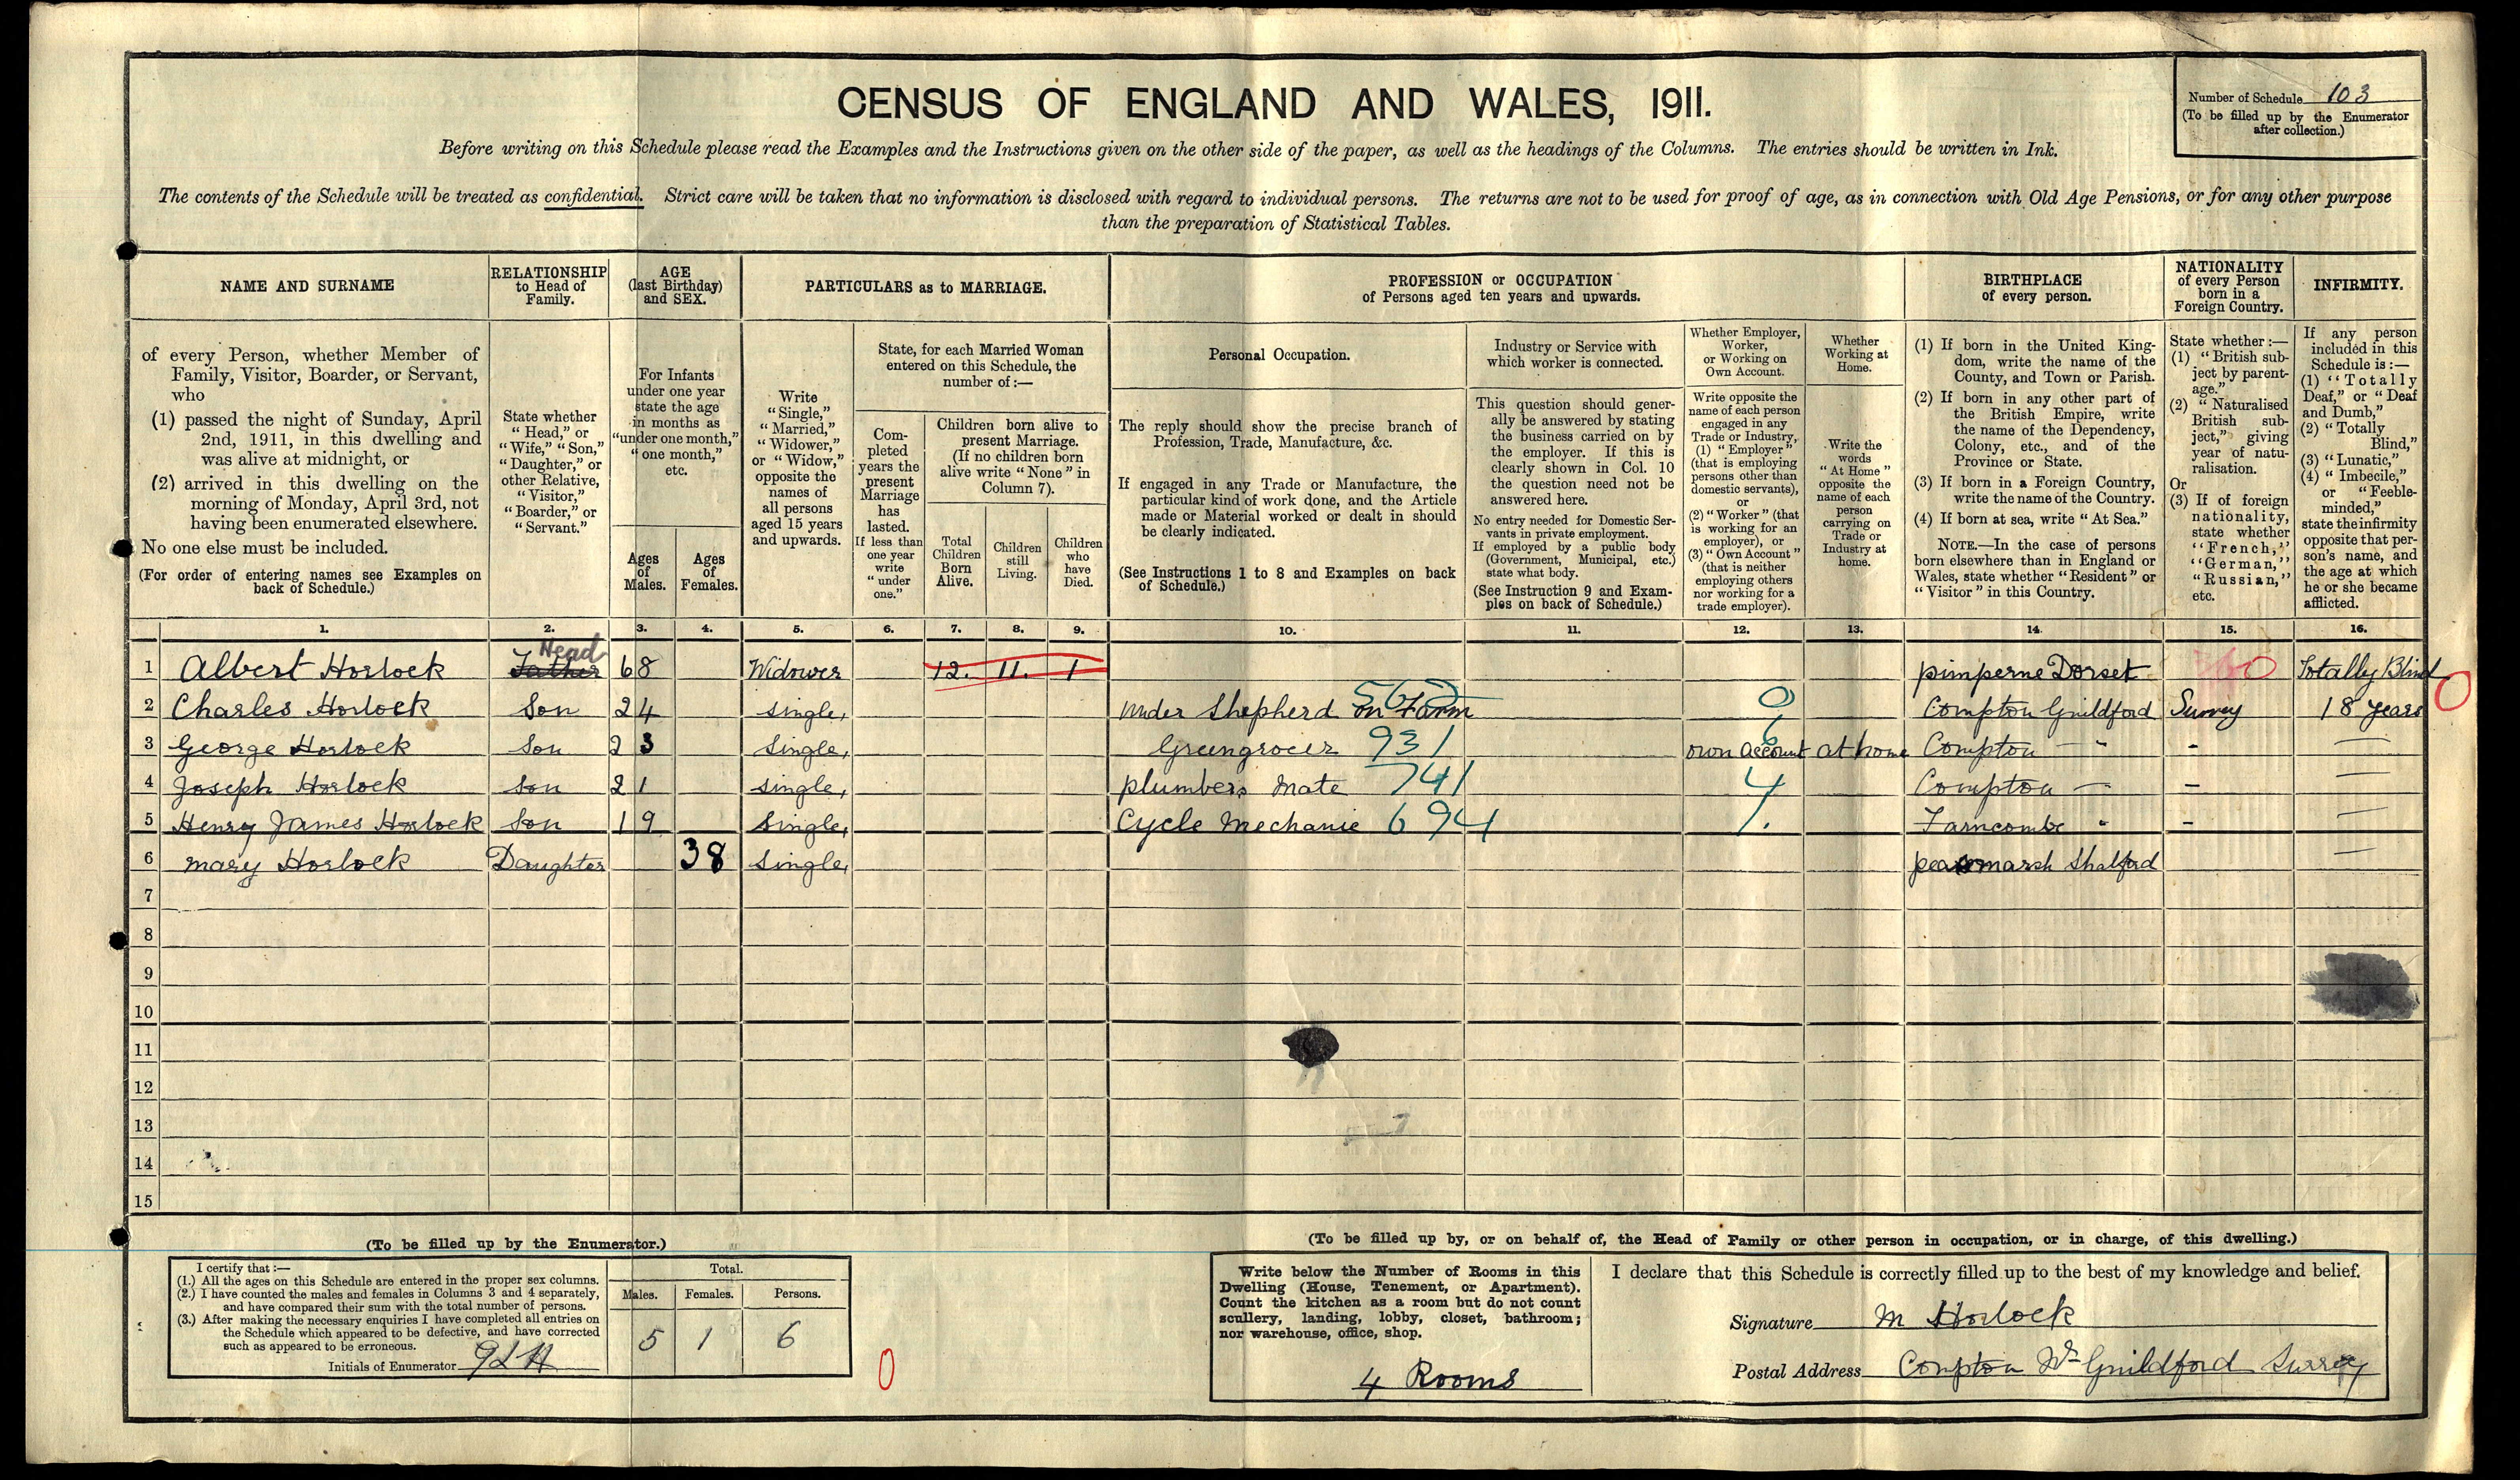 CENSUS OF ENGLAND AND WALES, 1911.
Number of Schedule 103
(To be filled up by the Enumerator
after collection.)
Before writing on this Schedule please read the Examples and the Instructions given on the other side of the paper, as well as the headings of the Columns. The entries should be written in Ink.
The contents of the Schedule will be treated as confidential. Strict care will be taken that no information is disclosed with regard to individual persons. The returns are not to be used for proof of age, as in connection with Old Age Pensions, or for any other purpose
than the preparation of Statistical Tables.
NAME AND SURNAME
of every Person, whether Member of
Family, Visitor, Boarder, or Servant,
who
(1) passed the night of Sunday, April
2nd, 1911, in this dwelling and
was alive at midnight, or
(2) arrived in this dwelling on the
morning of Monday, April 3rd, not
having been enumerated elsewhere.
No one else must be included.
(For order of entering names see Examples on
back of Schedule.)
RELATIONSHIP
to Head of
Family.
State whether
"Head," or
"Wife," "Son,"
"Daughter," or
other Relative,
"Visitor,"
"Boarder," or
"Servant."
AGE
(last Birthday)
and SEX.
For Infants
under one year
state the age
in months as
"under one month,"
"one month,"
etc.
Ages
of
Males.
Ages
of
Females.
PARTICULARS as to MARRIAGE.
Write
"Single,"
"Married,"
"Widower,"
or "Widow,"
opposite the
names of
all persons
aged 15 years
and upwards.
State, for each Married Woman
entered on this Schedule, the
number of:—
Com-
pleted
years the
present
Marriage
has
lasted.
If less than
one year
write
"under
one."
Children born alive to
present Marriage.
(If no children born
alive write "None" in
Column 7).
Total
Children
Born
Alive.
Children
still
Living.
Children
who
have
Died.
PROFESSION or OCCUPATION
of Persons aged ten years and upwards.
Personal Occupation.
The reply should show the precise branch of
Profession, Trade, Manufacture, &c.
If engaged in any Trade or Manufacture, the
particular kind of work done, and the Article
made or Material worked or dealt in should
be clearly indicated.
(See Instructions 1 to 8 and Examples on back
of Schedule.)
Industry or Service with
which worker is connected.
This question should gener-
ally be answered by stating
the business carried on by
the employer. If this is
clearly shown in Col. 10
the question need not be
answered here.
No entry needed for Domestic Ser-
vants in private employment.
If employed by a public body
(Government, Municipal, etc.)
state what body.
(See Instruction 9 and Exam-
ples on back of Schedule.)
Whether Employer,
Worker,
or Working on
Own Account.
Write opposite the
name of each person
engaged in any
Trade or Industry,
(1) "Employer"
(that is employing
persons other than
domestic servants),
or
(2) "Worker" (that
is working for an
employer), or
(3) "Own Account"
(that is neither
employing others
nor working for a
trade employer).
Whether
Working at
Home.
Write the
words
"At Home"
opposite the
name of each
person
carrying on
Trade or
Industry at
home.
BIRTHPLACE
of every person.
(1) If born in the United King-
dom, write the name of the
County, and Town or Parish.
(2) If born in any other part of
the British Empire, write
the name of the Dependency,
Colony, etc., and of the
Province or State.
(3) If born in a Foreign Country,
write the name of the Country.
(4) If born at sea, write "At Sea."
NOTE.—In the case of persons
born elsewhere than in England or
Wales, state whether "Resident" or
"Visitor" in this Country.
NATIONALITY
of every Person
born in a
Foreign Country.
State whether :—
(1) "British sub-
ject by parent-
age."
(2) "Naturalised
British sub-
ject," giving
year of natu-
ralisation.
Or
(3) If of foreign
nationality,
state whether
"French,"
"German,"
"Russian,"
etc.
INFIRMITY.
If any person
included in this
Schedule is:—
(1) "Totally
Deaf," or "Deaf
and Dumb,"
(2) "Totally
Blind,"
(3) "Lunatic,"
(4) "Imbecile,"
or "Feeble-
minded,"
state the infirmity
opposite that per-
son's name, and
the age at which
he or she became
afflicted.
1. 2. 3. 4. 5. 6. 7. 8. 9. 10. 11. 12. 13. 14. 15. 16.
Head
1 Albert Horlock Father 68 Widower 12. 11. 1 pimperne Dorset Totally Blind
2 Charles Horlock Son 24 Single, under Shepherd on Farm 0 Compton Guildford Surrey 18 years
3 George Horlock Son 23 Single, Greengrocer 931 own account 6 at home Compton — " -
4 Joseph Horlock Son 21 Single, plumbers Mate 741 Compton — -
5 Henry James Horlock Son 19 Single, Cycle Mechanic 694 Farncombe " -
6 mary Horlock Daughter 38 Single, Shalford
7
8
9
10
11
12
13
14
15
(To be filled up by the Enumerator.)
I certify that:—
(1.) All the ages on this Schedule are entered in the proper sex columns.
(2.) I have counted the males and females in Columns 3 and 4 separately,
and have compared their sum with the total number of persons.
(3.) After making the necessary enquiries I have completed all entries on
the Schedule which appeared to be defective, and have corrected
such as appeared to be erroneous.
Initials of Enumerator
Total.
Males. Females. Persons.
5 1 6
0
(To be filled up by, or on behalf of, the Head of Family or other person in occupation, or in charge, of this dwelling.)
Write below the Number of Rooms in this
Dwelling (House, Tenement, or Apartment).
Count the kitchen as a room but do not count
scullery, landing, lobby, closet, bathroom;
nor warehouse, office, shop.
4 Rooms
I declare that this Schedule is correctly filled up to the best of my knowledge and belief.
Signature M Horlock
Postal Address Compton Nr Guildford Surrey